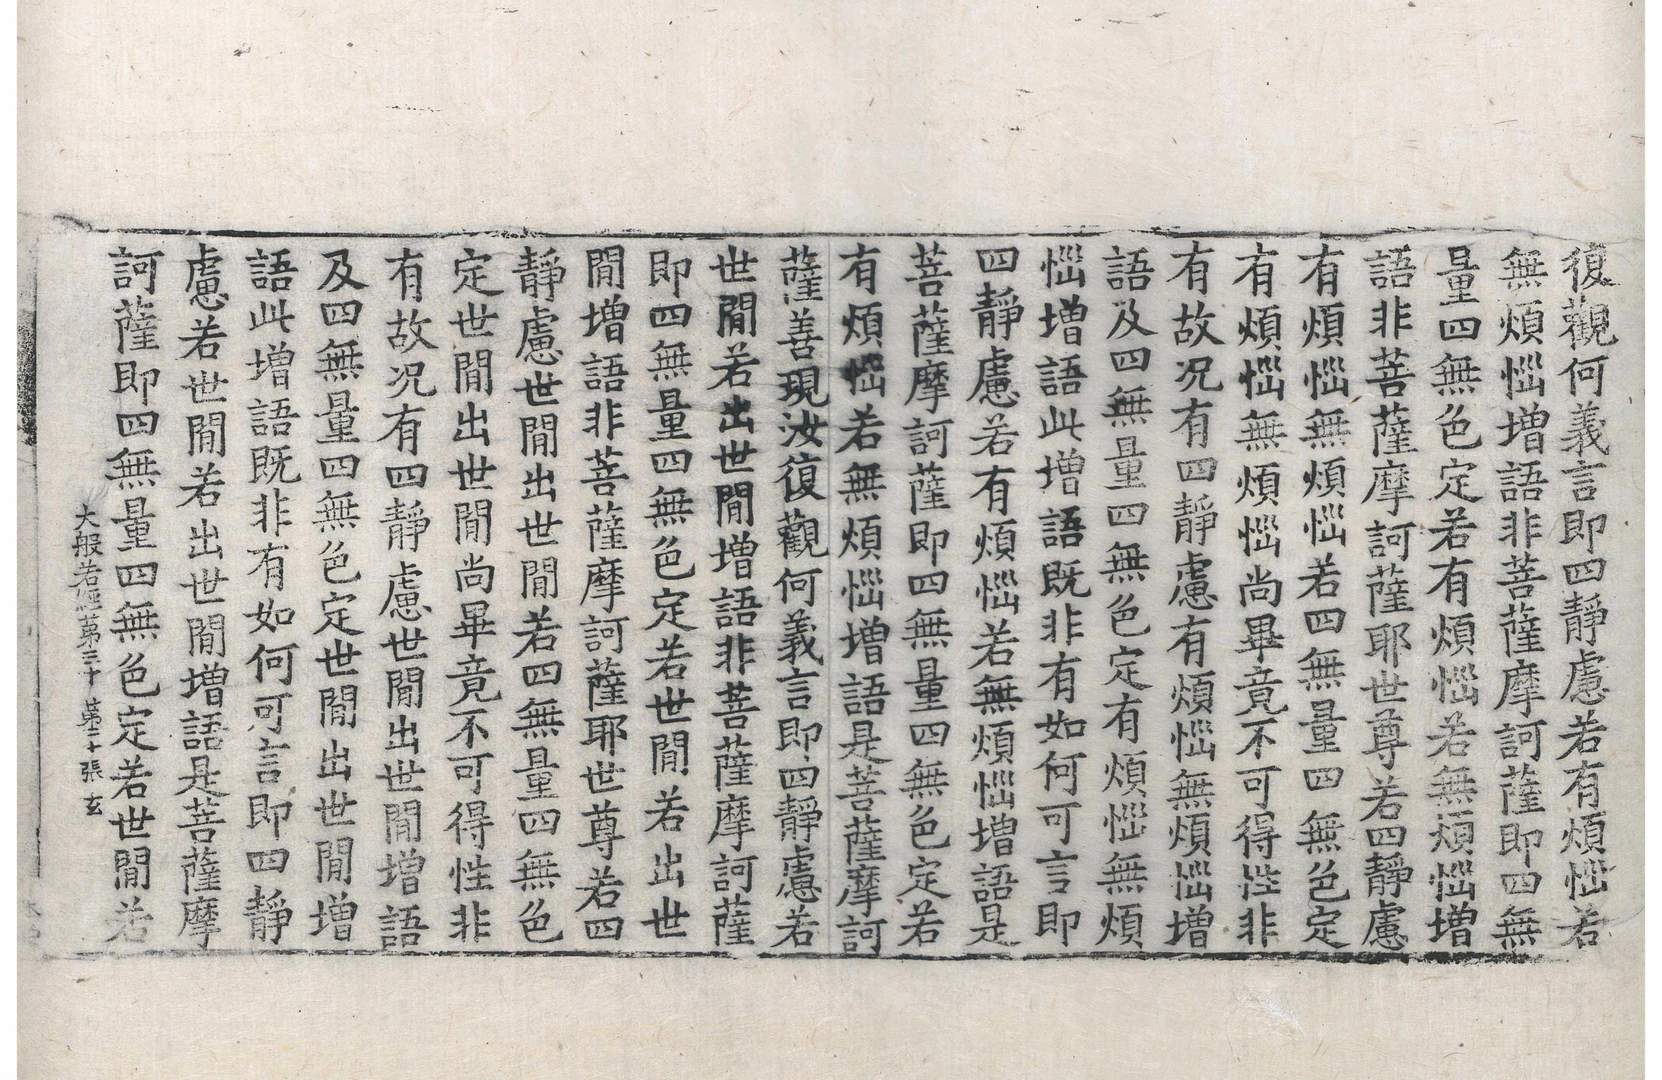 復觀何義言即四靜慮若有煩惱若
無煩惱增語非菩薩摩訶薩即四無
量四無色定若有煩惱若無煩惱增
語非菩薩摩訶薩耶世尊若四靜慮
有煩惱無煩惱若四無量四無色定
有煩惱無煩惱尚畢竟不可得性非
有故况有四靜慮有煩惱無煩惱增
語及四無量四無色定有煩惱無煩
惱增語此增語既非有如何可言即
四靜慮若有煩惱若無煩惱增語是
菩薩摩訶薩即四無量四無色定若
有煩惱若無煩惱增語是菩薩摩訶
薩善現汝復觀何義言即四靜慮若
世間若出世間增語非菩薩摩訶薩
即四無量四無色定若世間若出世
間增語非菩薩摩訶薩耶世尊若四
靜慮世間出世間若四無量四無色
定世間出世間尚畢竟不可得性非
有故况有四靜慮世間出世間增語
及四無量四無色定世間出世間增
語此增語既非有如何可言即四靜
慮若世間若出世間增語是菩薩摩
訶薩即四無量四無色定若世間若
大般若經第三十 第二十張 玄